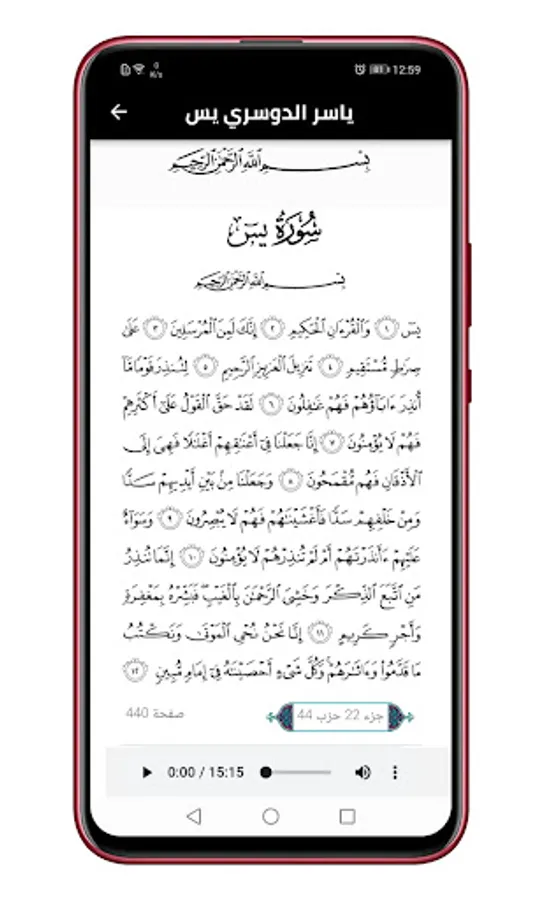 0 K/s 12:59
ياسر الدوسري يس
بِسْمِ ٱللَّهِ ٱلرَّحْمَٰنِ ٱلرَّحِيمِ
سُورَةُ يسٓ
بِسْمِ ٱللَّهِ ٱلرَّحْمَٰنِ ٱلرَّحِيمِ
يسٓ ١ وَٱلْقُرْءَانِ ٱلْحَكِيمِ ٢ إِنَّكَ لَمِنَ ٱلْمُرْسَلِينَ ٣ عَلَىٰ
صِرَٰطٍ مُّسْتَقِيمٍ ٤ تَنزِيلَ ٱلْعَزِيزِ ٱلرَّحِيمِ ٥ لِتُنذِرَ قَوْمًا مَّآ
أُنذِرَ ءَابَآؤُهُمْ فَهُمْ غَٰفِلُونَ ٦ لَقَدْ حَقَّ ٱلْقَوْلُ عَلَىٰٓ أَكْثَرِهِمْ
فَهُمْ لَا يُؤْمِنُونَ ٧ إِنَّا جَعَلْنَا فِىٓ أَعْنَٰقِهِمْ أَغْلَٰلًا فَهِىَ إِلَى
ٱلْأَذْقَانِ فَهُم مُّقْمَحُونَ ٨ وَجَعَلْنَا مِنۢ بَيْنِ أَيْدِيهِمْ سَدًّا
وَمِنْ خَلْفِهِمْ سَدًّا فَأَغْشَيْنَٰهُمْ فَهُمْ لَا يُبْصِرُونَ ٩ وَسَوَآءٌ
عَلَيْهِمْ ءَأَنذَرْتَهُمْ أَمْ لَمْ تُنذِرْهُمْ لَا يُؤْمِنُونَ ١٠ إِنَّمَا تُنذِرُ
مَنِ ٱتَّبَعَ ٱلذِّكْرَ وَخَشِىَ ٱلرَّحْمَٰنَ بِٱلْغَيْبِ ۖ فَبَشِّرْهُ بِمَغْفِرَةٍ
وَأَجْرٍ كَرِيمٍ ١١ إِنَّا نَحْنُ نُحْىِ ٱلْمَوْتَىٰ وَنَكْتُبُ
مَا قَدَّمُوا۟ وَءَاثَٰرَهُمْ ۚ وَكُلَّ شَىْءٍ أَحْصَيْنَٰهُ فِىٓ إِمَامٍ مُّبِينٍ ١٢
جزء 22 حزب 44 صفحة 440
0:00 / 15:15